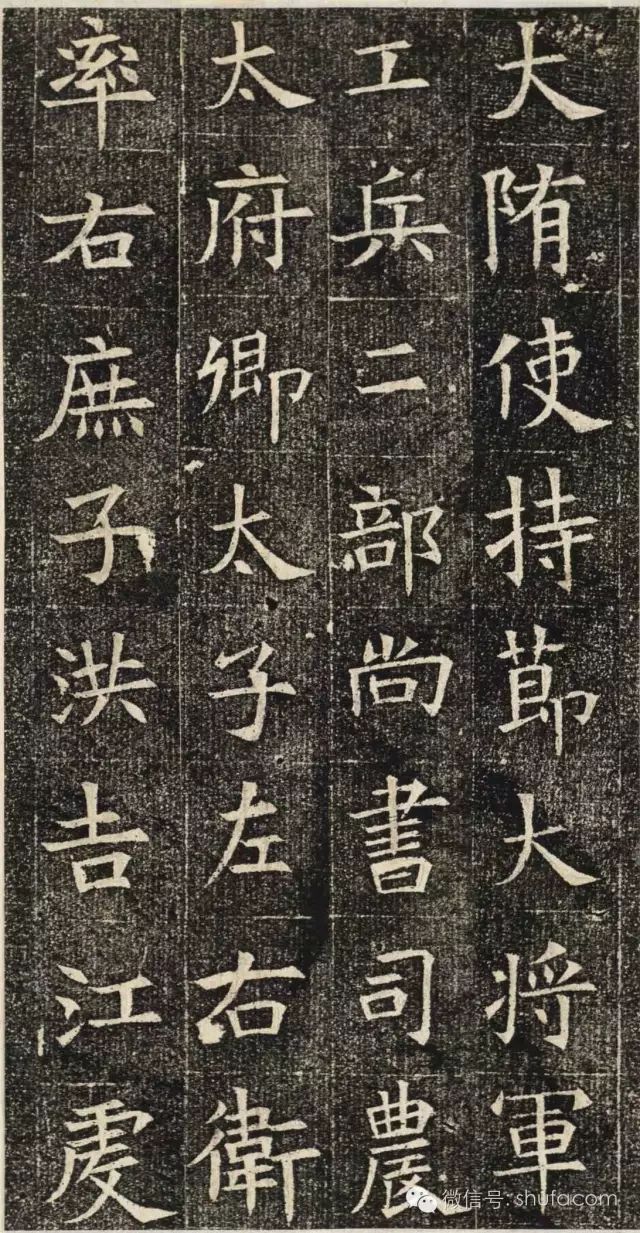 大隋使持節大將軍
工兵二部尚書司農
太府卿太子左右衛
率右庶子洪吉江虔
微信号: shufacom